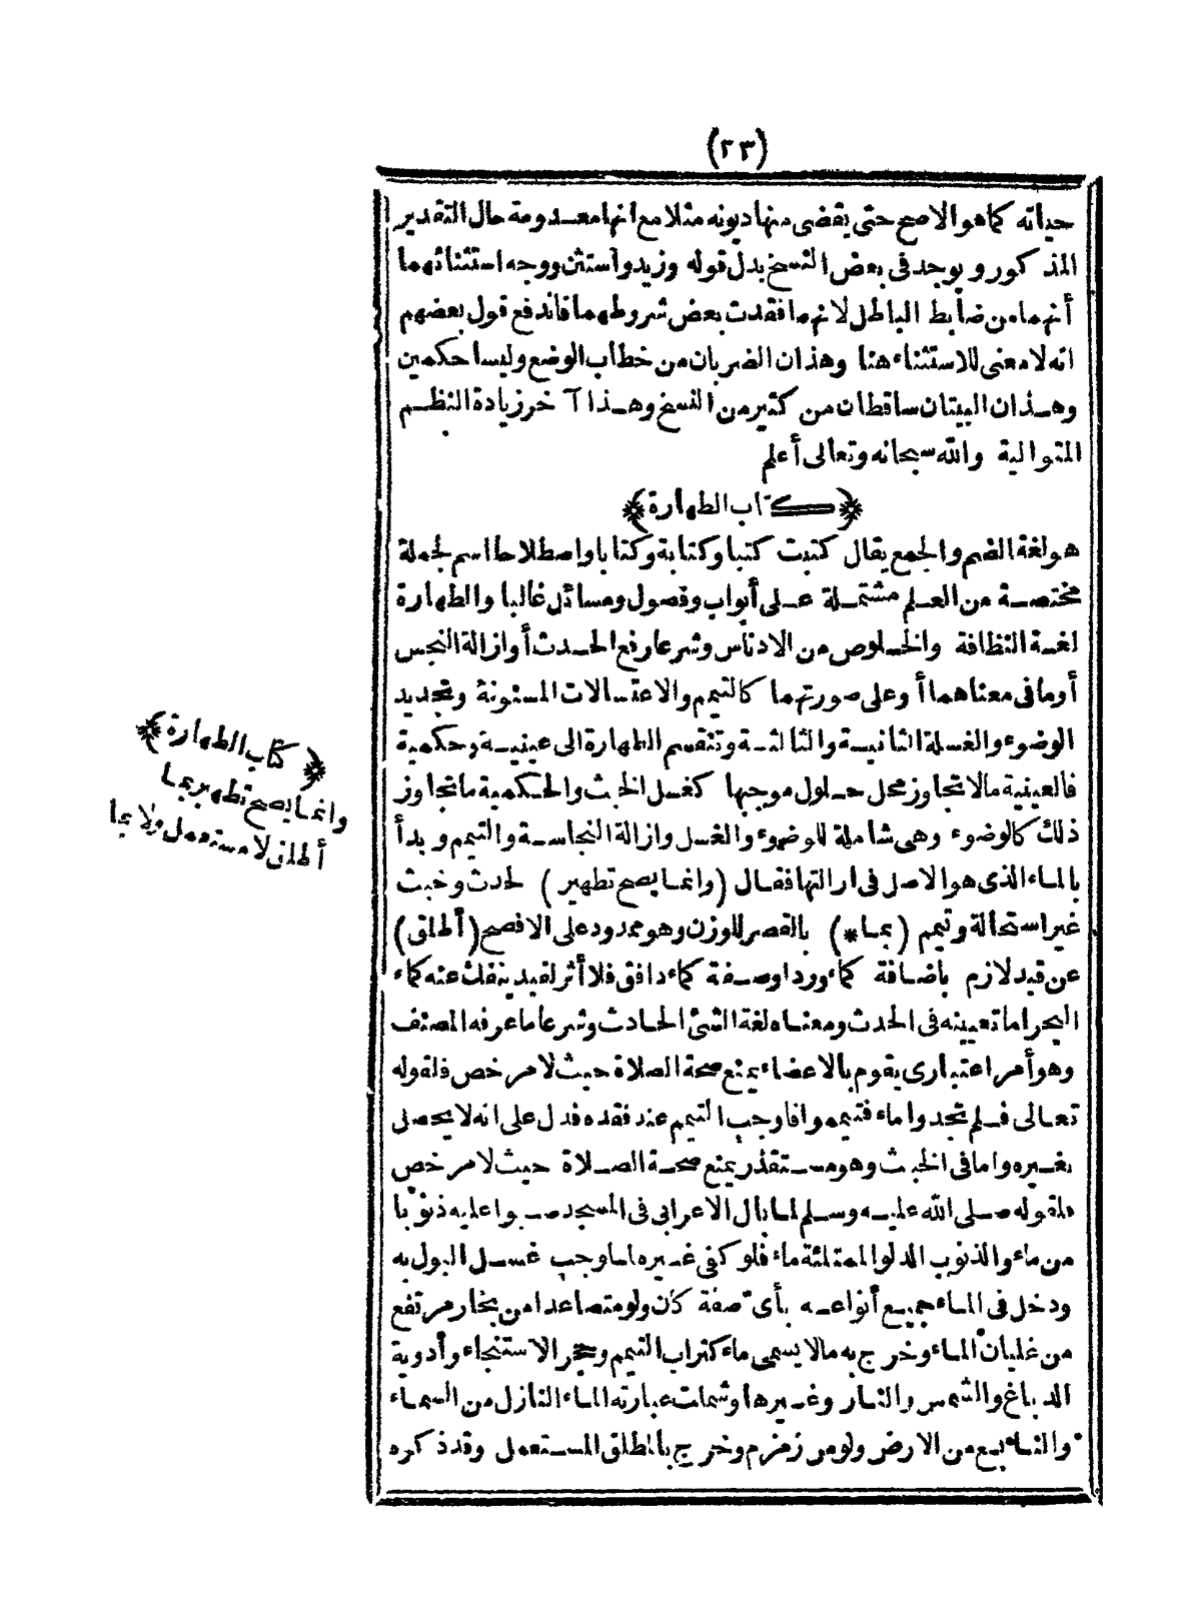 (٢٣)
حياته كما هو الاصح حتى يقضى منها ديونه مثلا مع انها معدومة حال التقدير
المذكور و يوجد فى بعض النسخ بدل قوله وزيد واستثن ووجه استثنائهما
أنهما من ضابط الباطل لانهما فقدت بعض شروطهما فاندفع قول بعضهم
انه لا معنى للاستثناء هنا وهذان الضربان من خطاب الوضع وليسا حكمين
وهذان البيتان ساقطان من كثير من النسخ وهذا آخر زيادة النظم
المتوالية والله سبحانه وتعالى أعلم
﴿كتاب الطهارة﴾
هو لغة الضم والجمع يقال كتبت كتبا وكتابة وكتابا واصطلاحا اسم لجملة
مختصة من العلم مشتملة على أبواب وفصول ومسائل غالبا والطهارة
لغة النظافة والخلوص من الادناس وشرعا رفع الحدث أو ازالة النجس
أو ما فى معناهما أو على صورتهما كالتيمم والاغتسالات المسنونة وتجديد
الوضوء والغسلة الثانية والثالثة وتنقسم الطهارة الى عينية وحكمية
فالعينية مالا تتجاوز محل حلول موجبها كغسل الخبث والحكمية ما تتجاوز
ذلك كالوضوء وهى شاملة للوضوء والغسل وازالة النجاسة والتيمم و بدأ
بالماء الذى هو الاصل فى ازالتها فقال (وانما يصح تطهير) لحدث وخبث
غير استحالة وتيمم (بما*) بالقصر للوزن وهو ممدود على الافصح (أطلق)
عن قيد لازم باضافة كماء ورد اوصفة كماء دافق فلا أثر لقيد ينفك عنه كماء
البحر اما تعيينه فى الحدث ومعناه لغة الشئ الحادث وشرعا ما عرفه المصنف
وهو أمر اعتبارى يقوم بالاعضاء يمنع صحة الصلاة حيث لا مرخص فلقوله
تعالى فلم تجدوا ماء فتيمموا فاوجب التيمم عند فقده فدل على انه لا يحصل
بغيره واما فى الخبث وهو مستقذر يمنع صحة الصلاة حيث لا مرخص
فلقوله صلى الله عليه وسلم لما بال الاعرابى فى المسجد صبوا عليه ذنوبا
من ماء والذنوب الدلو الممتلئة ماء فلو كفى غيره لما وجب غسل البول به
ودخل فى الماء جميع أنواعه بأى صفة كان ولو متصاعدا من بخار مرتفع
من غليان الماء وخرج به مالا يسمى ماء كتراب التيمم وحجر الاستنجاء وأدوية
الدباغ والشمس والنار وغيرها وشملت عبارته الماء النازل من السماء
والنابع من الارض ولو من زمزم وخرج بالمطلق المستعمل وقد ذكره
﴿كتاب الطهارة﴾
وانما يصح تطهير بما
أطلق لا مستعمل ولا بما